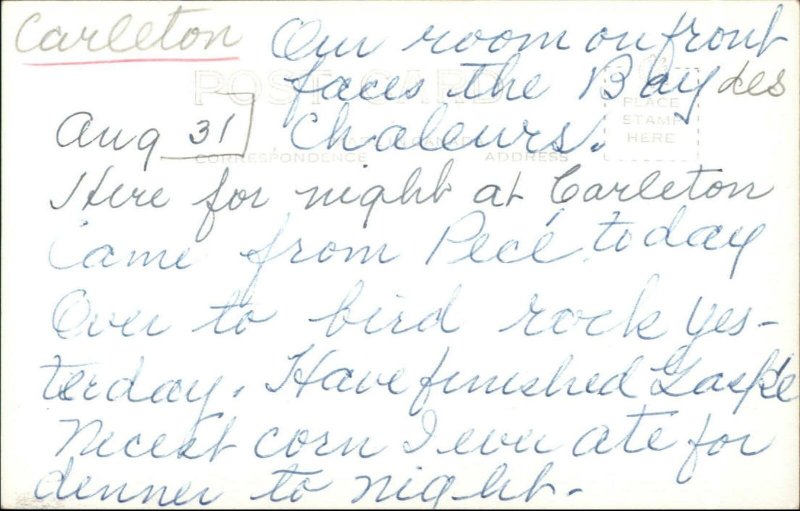 Carleton Our room on front
faces the Bay des
POST CARD
PLACE
STAMP
HERE
Aug 31 Chaleurs.
CORRESPONDENCE ADDRESS
Here for night at Carleton
Came from Pecé today
Over to bird rock yes-
terday. Have finished Gaspé
Nicest corn I ever ate for
denner to night-